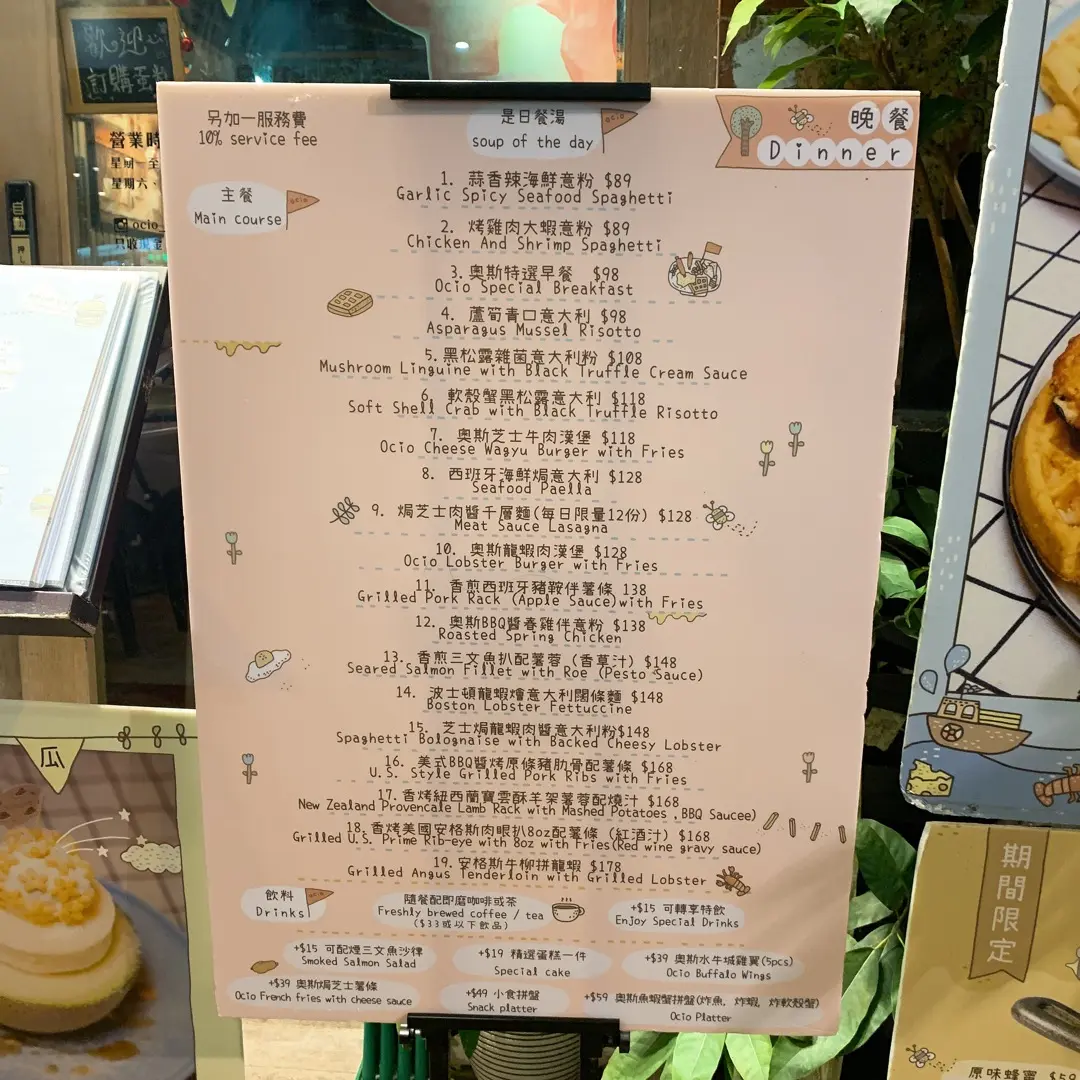 歡迎
訂購蛋
營業時
星期一至
星期六、
ocio_
只收現金
自
押
另加一服務費
10% service fee
是日餐湯
soup of the day
ocio
晚餐
Dinner
主餐
Main course
ocio
1. 蒜香辣海鮮意粉 $89
Garlic Spicy Seafood Spaghetti
2. 烤雞肉大蝦意粉 $89
Chicken And Shrimp Spaghetti
3. 奧斯特選早餐 $98
Ocio Special Breakfast
4. 蘆筍青口意大利 $98
Asparagus Mussel Risotto
5. 黑松露雜菌意大利粉 $108
Mushroom Linguine with Black Truffle Cream Sauce
6. 軟殼蟹黑松露意大利 $118
Soft Shell Crab with Black Truffle Risotto
7. 奧斯芝士牛肉漢堡 $118
Ocio Cheese Wagyu Burger with Fries
8. 西班牙海鮮焗意大利 $128
Seafood Paella
9. 焗芝士肉醬千層麵(每日限量12份) $128
Meat Sauce Lasagna
10. 奧斯龍蝦肉漢堡 $128
Ocio Lobster Burger with Fries
11. 香煎西班牙豬鞍伴薯條 138
Grilled Pork Rack (Apple Sauce)with Fries
12. 奧斯BBQ醬春雞伴意粉 $138
Roasted Spring Chicken
13. 香煎三文魚扒配薯蓉 (香草汁) $148
Seared Salmon Fillet with Roe (Pesto Sauce)
14. 波士頓龍蝦燴意大利闊條麵 $148
Boston Lobster Fettuccine
15. 芝士焗龍蝦肉醬意大利粉$148
Spaghetti Bolognaise with Backed Cheesy Lobster
16. 美式BBQ醬烤原條豬肋骨配薯條 $168
U.S. Style Grilled Pork Ribs with Fries
17. 香烤紐西蘭寶雲酥羊架薯蓉配燒汁 $168
New Zealand Provencale Lamb Rack with Mashed Potatoes ,BBQ Saucee)
18. 香烤美國安格斯肉眼扒8oz配薯條 (紅酒汁) $168
Grilled U.S. Prime Rib-eye with 8oz with Fries(Red wine gravy sauce)
19. 安格斯牛柳拼龍蝦 $178
Grilled Angus Tenderloin with Grilled Lobster
飲料
Drinks
ocio
隨餐配即磨咖啡或茶
Freshly brewed coffee / tea
($33或以下飲品)
+$15 可轉享特飲
Enjoy Special Drinks
+$15 可配煙三文魚沙律
Smoked Salmon Salad
+$19 精選蛋糕一件
Special cake
+$39 奧斯水牛城雞翼(5pcs)
Ocio Buffalo Wings
+$39 奧斯焗芝士薯條
Ocio French fries with cheese sauce
+$49 小食拼盤
Snack platter
+$59 奧斯魚蝦蟹拼盤(炸魚, 炸蝦, 炸軟殼蟹)
Ocio Platter
瓜
期間限定
原味蜂蜜 $59